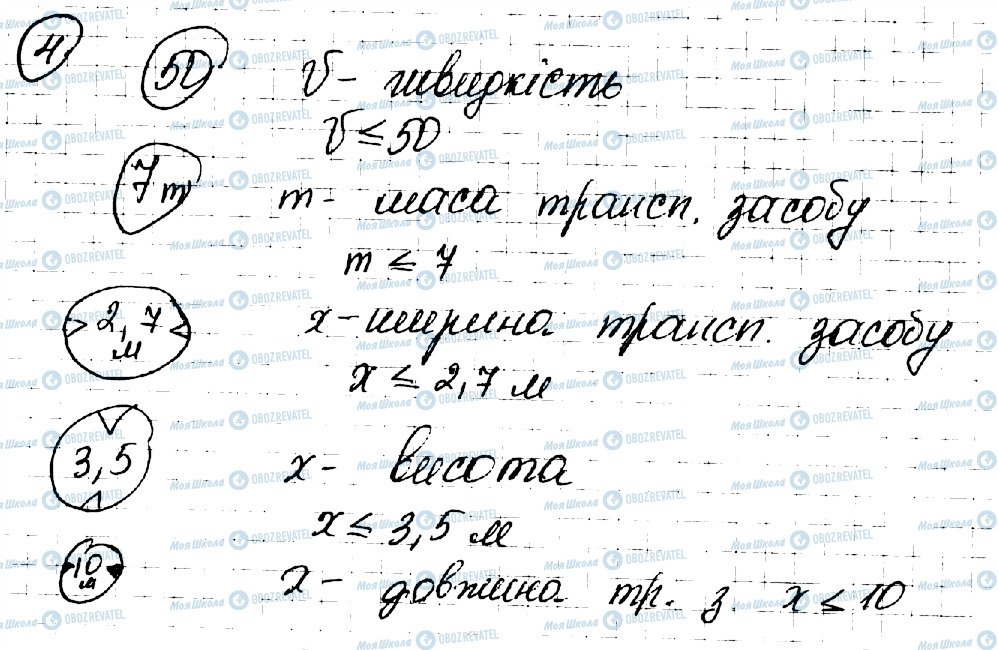 4
50 V - швидкість
V ≤ 50
7т m - маса трансп. засобу
m ≤ 7
2,7 м x - ширина трансп. засобу
x ≤ 2,7 м
3,5 x - висота
x ≤ 3,5 м
10 м x - довжина тр. з. x ≤ 10